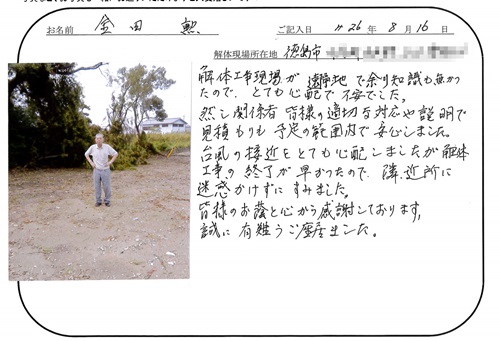 お名前 金田 勲
ご記入日 H26年8月16日
解体現場所在地 徳島市
解体工事現場が遠隔地で余り知識も無かっ
たので、とても心配で不安でした。
然し関係者皆様の適切な対応や説明で
見積もりも予定の範囲内で安心しました。
台風の接近をとても心配しましたが解体
工事の終了が早かったので、隣、近所に
迷惑かけずにすみました。
皆様のお蔭と心から感謝しております。
誠に有難うご座居ました。